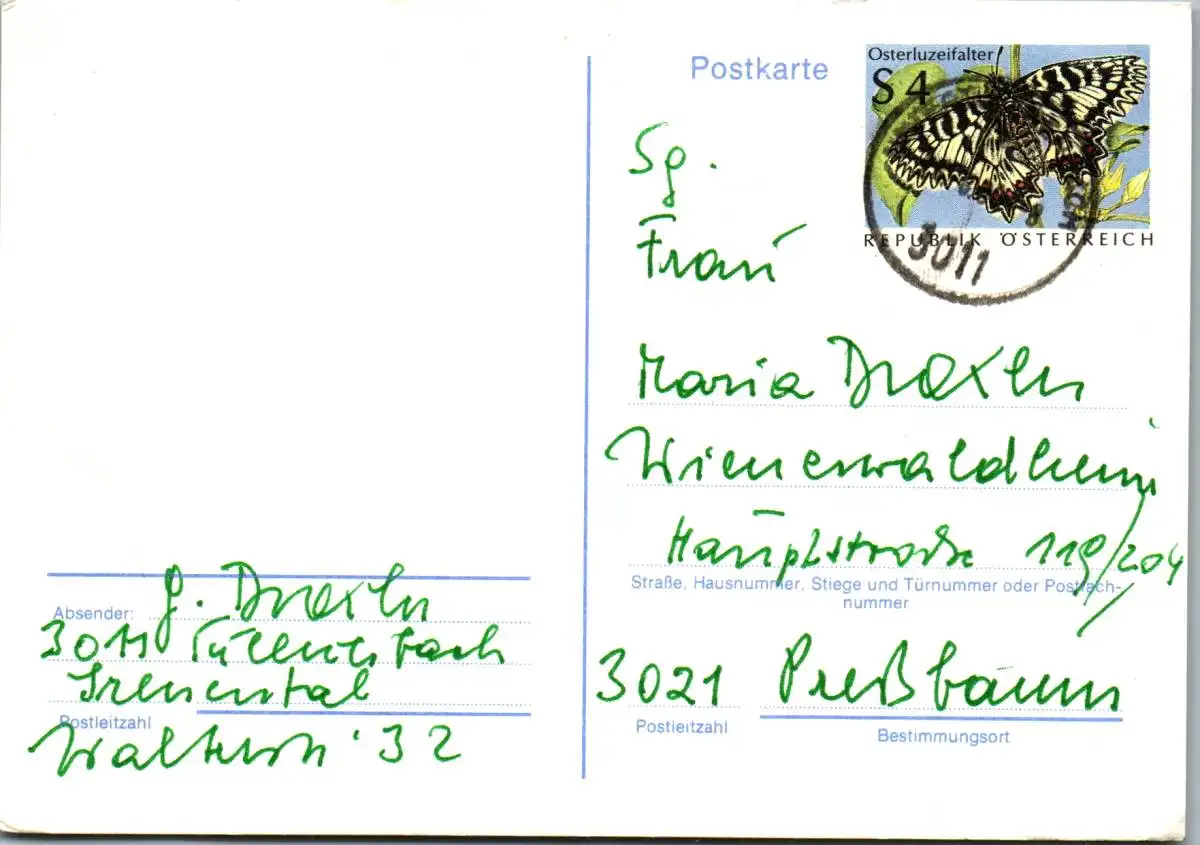 Postkarte
Osterluzeifalter
S 4
REPUBLIK ÖSTERREICH
3011
Sg.
Frau
Maria Draxler
Wienerwaldheim
Hauptstraße 119/204
Straße, Hausnummer, Stiege und Türnummer oder Postfach-
nummer
3021 Preßbaum
Postleitzahl
Bestimmungsort
Absender: G. Draxler
3011 Tullnerbach
Irenental
Postleitzahl
32